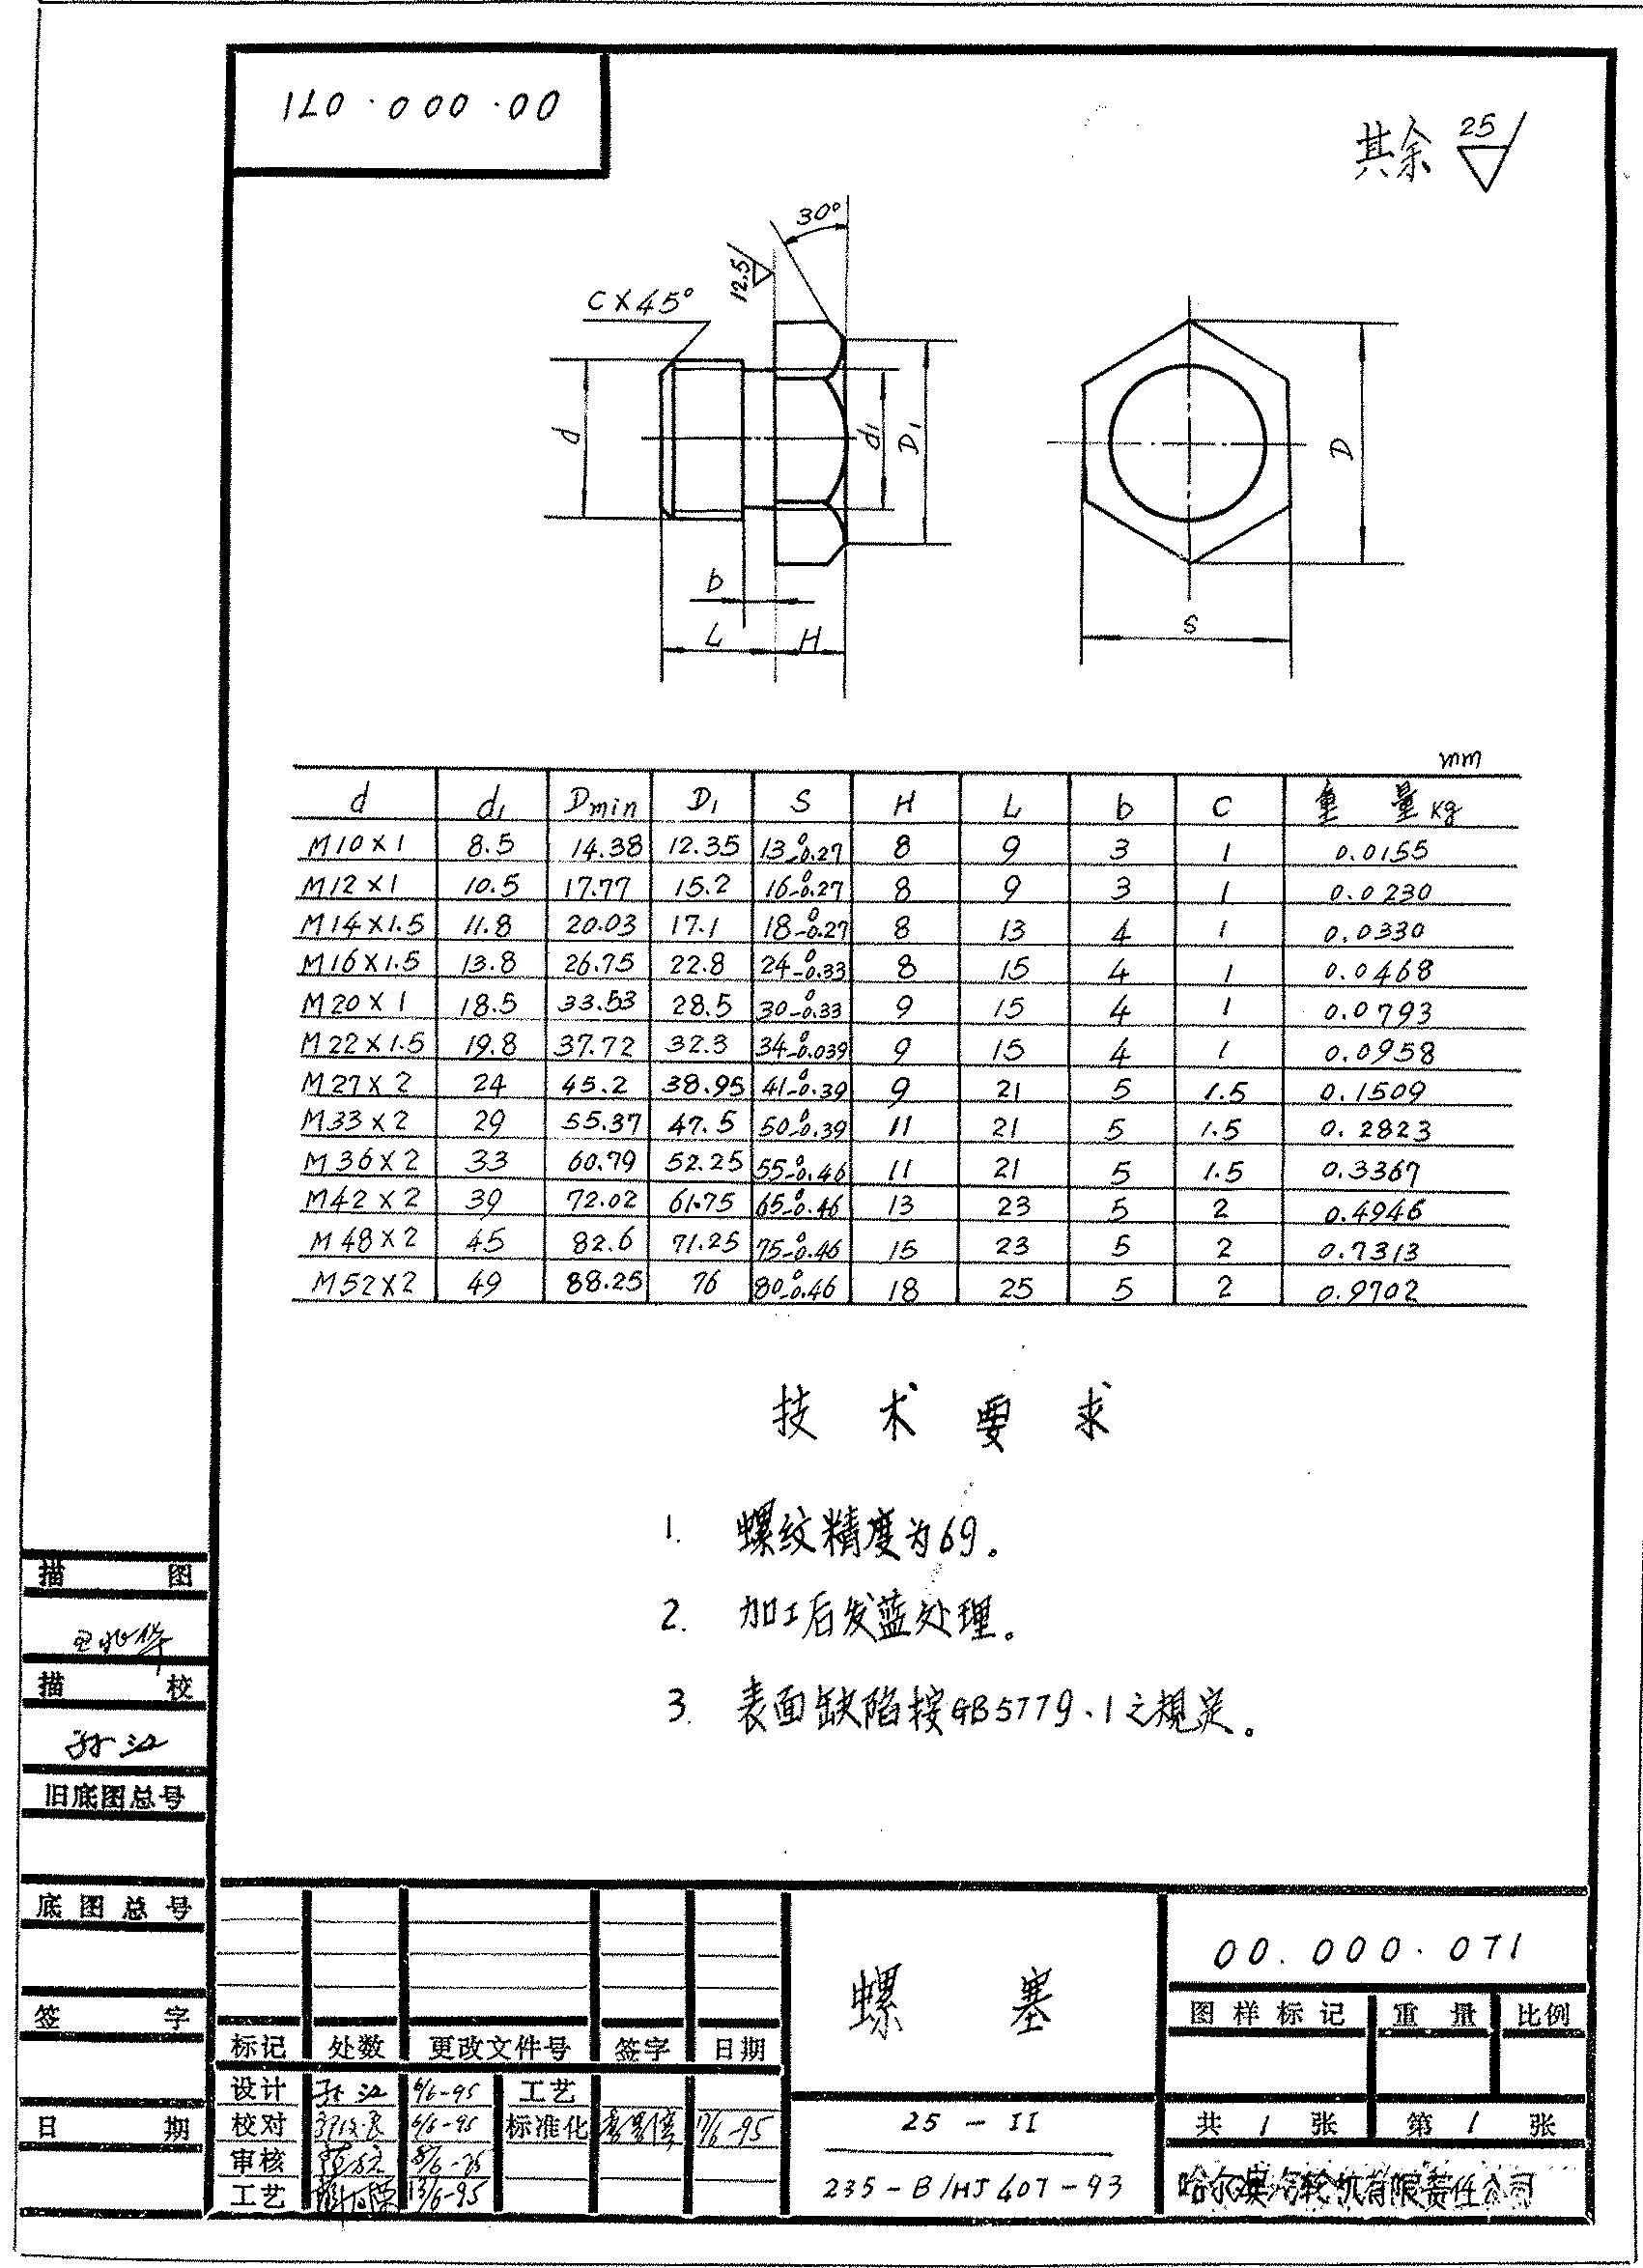 00.000.071
其余 25
30°
12.5
C×45°
d
d1
D1
D
b
L
H
S
mm
d d1 Dmin D1 S H L b C 重量kg
M10×1 8.5 14.38 12.35 13 0 -0.27 8 9 3 1 0.0155
M12×1 10.5 17.77 15.2 16 0 -0.27 8 9 3 1 0.0230
M14×1.5 11.8 20.03 17.1 18 0 -0.27 8 13 4 1 0.0330
M16×1.5 13.8 26.75 22.8 24 0 -0.33 8 15 4 1 0.0468
M20×1 18.5 33.53 28.5 30 0 -0.33 9 15 4 1 0.0793
M22×1.5 19.8 37.72 32.3 34 0 -0.039 9 15 4 1 0.0958
M27×2 24 45.2 38.95 41 0 -0.39 9 21 5 1.5 0.1509
M33×2 29 55.37 47.5 50 0 -0.39 11 21 5 1.5 0.2823
M36×2 33 60.79 52.25 55 0 -0.46 11 21 5 1.5 0.3367
M42×2 39 72.02 61.75 65 0 -0.46 13 23 5 2 0.4946
M48×2 45 82.6 71.25 75 0 -0.46 15 23 5 2 0.7313
M52×2 49 88.25 76 80 0 -0.46 18 25 5 2 0.9702
技术要求
1. 螺纹精度为6g。
2. 加工后发蓝处理。
3. 表面缺陷按GB5779.1之规定。
描图
描校
孙江
旧底图总号
底图总号
签字
日期
标记 处数 更改文件号 签字 日期
设计 孙江 6/6-95 工艺
校对 6/6-95 标准化 17/6-95
审核
工艺 13/6-95
螺塞
25-II
235-B/HJ407-93
00.000.071
图样标记 重量 比例
共1张 第1张
哈尔滨汽轮机有限责任公司